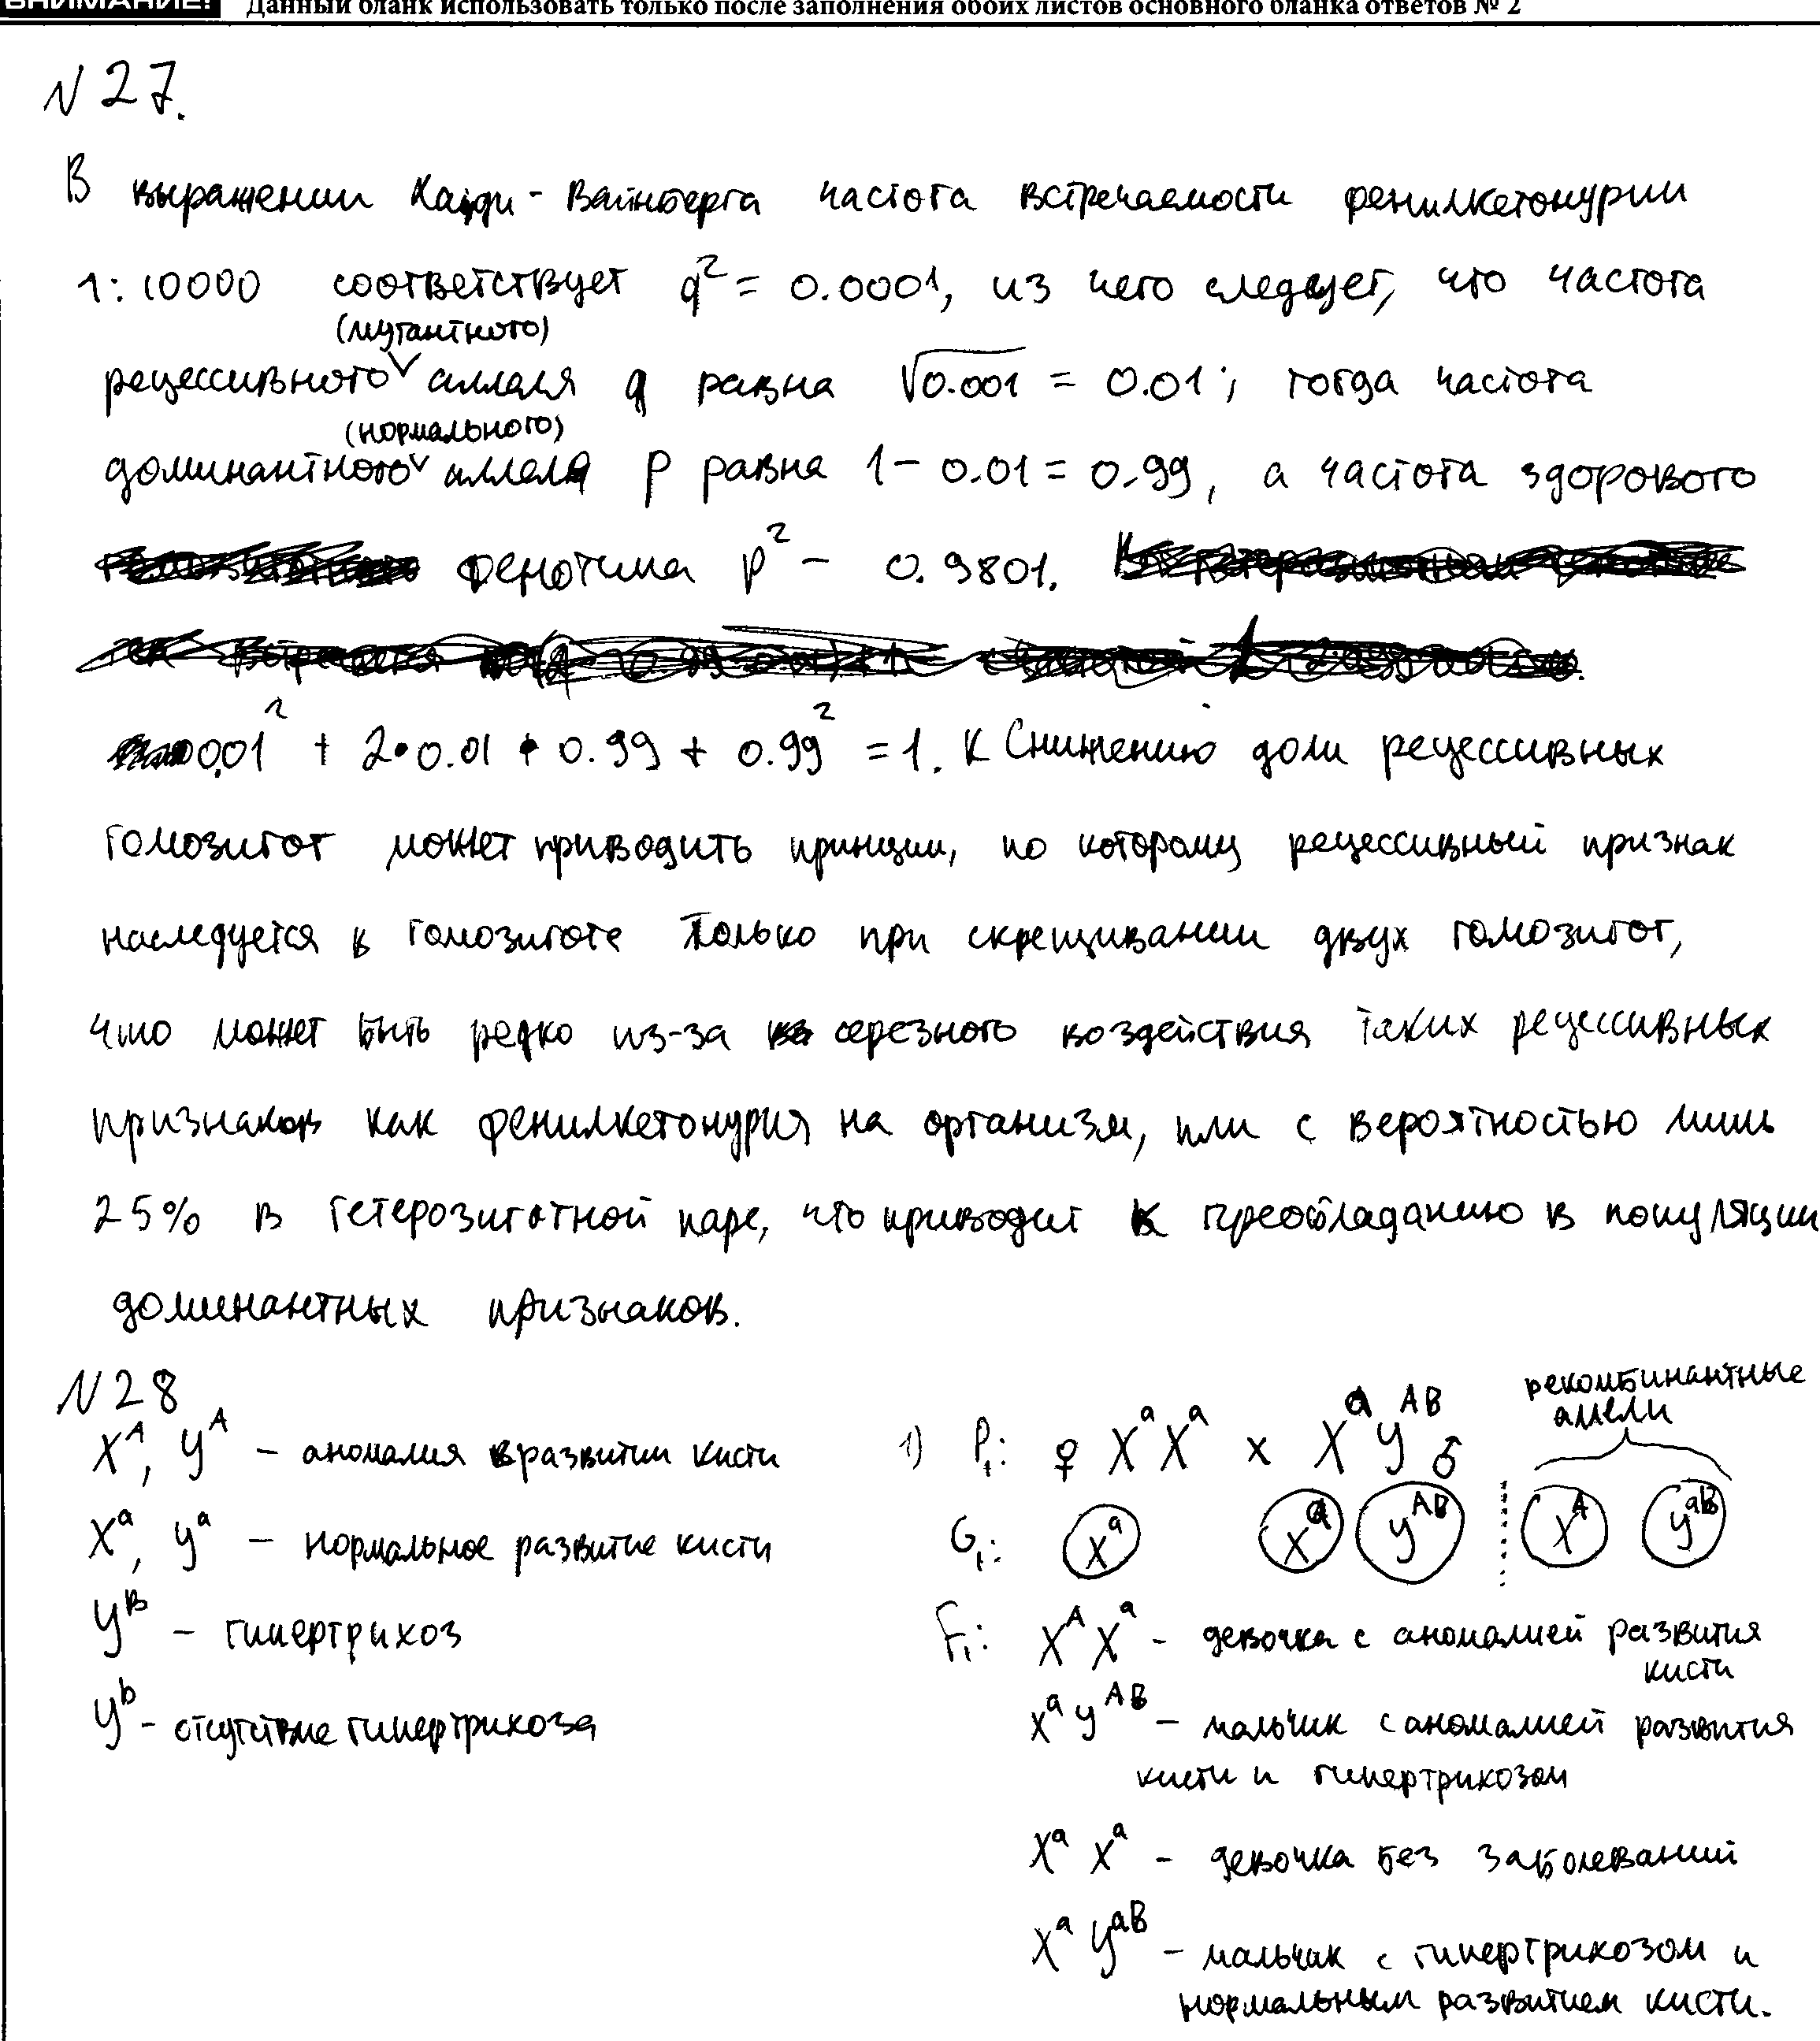 ВНИМАНИЕ! Данный бланк использовать только после заполнения обоих листов основного бланка ответов № 2
N 27.
В выражении Харди - Вайнберга частота встречаемости фенилкетонурии
1:10000 соответствует q² = 0.0001, из чего следует, что частота
(мутантного)
рецессивного ∨ аллеля q равна √0.001 = 0.01; тогда частота
(нормального)
доминантного ∨ аллеля p равна 1 - 0.01 = 0.99, а частота здорового
фенотипа p² - 0.9801.
0.01² + 2•0.01•0.99 + 0.99² = 1. К снижению доли рецессивных
гомозигот может приводить принцип, по которому рецессивный признак
наследуется в гомозиготе только при скрещивании двух гомозигот,
что может быть редко из-за серезного воздействия таких рецессивных
признаков как фенилкетонурия на организм, или с вероятностью лишь
25% в гетерозиготной паре, что приводит к преобладанию в популяции
доминантных признаков.
N 28
Xᴬ, Yᴬ - аномалия в развитии кисти
Xᵃ, Yᵃ - нормальное развитие кисти
Yᴮ - гипертрихоз
Yᵇ - отсутствие гипертрихоза
рекомбинантные
аллели
1) P₁: ♀ XᵃXᵃ x XᵃYᴬᴮ ♂
G₁: Xᵃ Xᵃ Yᴬᴮ Xᴬ Yᵃᴮ
F₁: XᴬXᵃ - девочка с аномалией развития
кисти
XᵃYᴬᴮ - мальчик с аномалией развития
кисти и гипертрихозом
XᵃXᵃ - девочка без заболеваний
XᵃYᵃᴮ - мальчик с гипертрихозом и
нормальным развитием кисти.